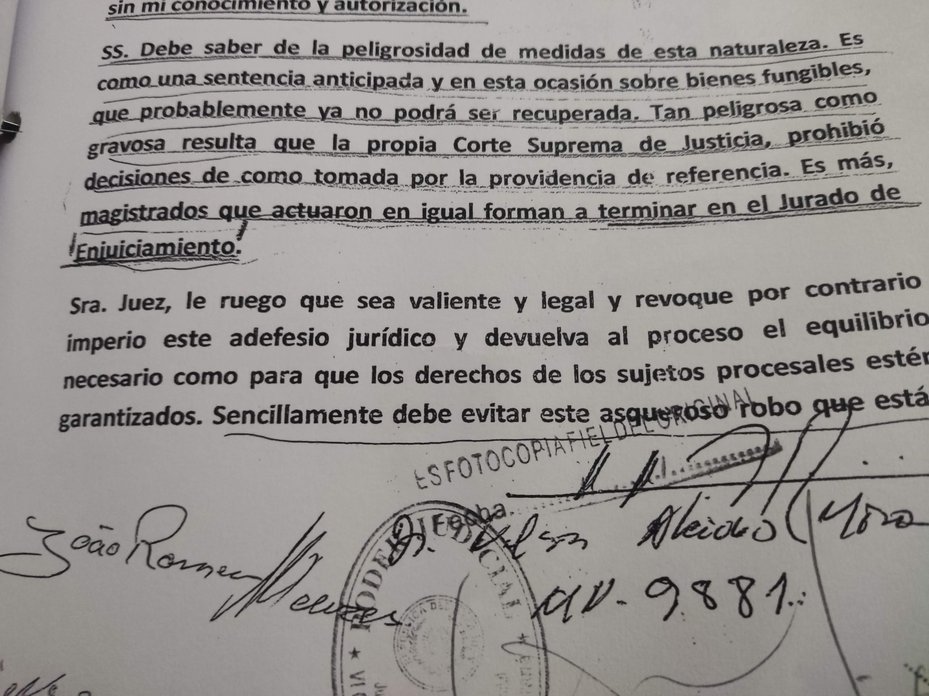 sin mi conocimiento y autorización.
SS. Debe saber de la peligrosidad de medidas de esta naturaleza. Es
como una sentencia anticipada y en esta ocasión sobre bienes fungibles,
que probablemente ya no podrá ser recuperada. Tan peligrosa como
gravosa resulta que la propia Corte Suprema de Justicia, prohibió
decisiones de como tomada por la providencia de referencia. Es más,
magistrados que actuaron en igual forman a terminar en el Jurado de
Enjuiciamiento.
Sra. Juez, le ruego que sea valiente y legal y revoque por contrario
imperio este adefesio jurídico y devuelva al proceso el equilibrio
necesario como para que los derechos de los sujetos procesales estén
garantizados. Sencillamente debe evitar este asqueroso robo que está
ES FOTOCOPIA FIEL DEL ORIGINAL
Fecha
João Menezes
PODER JUDICIAL
9881